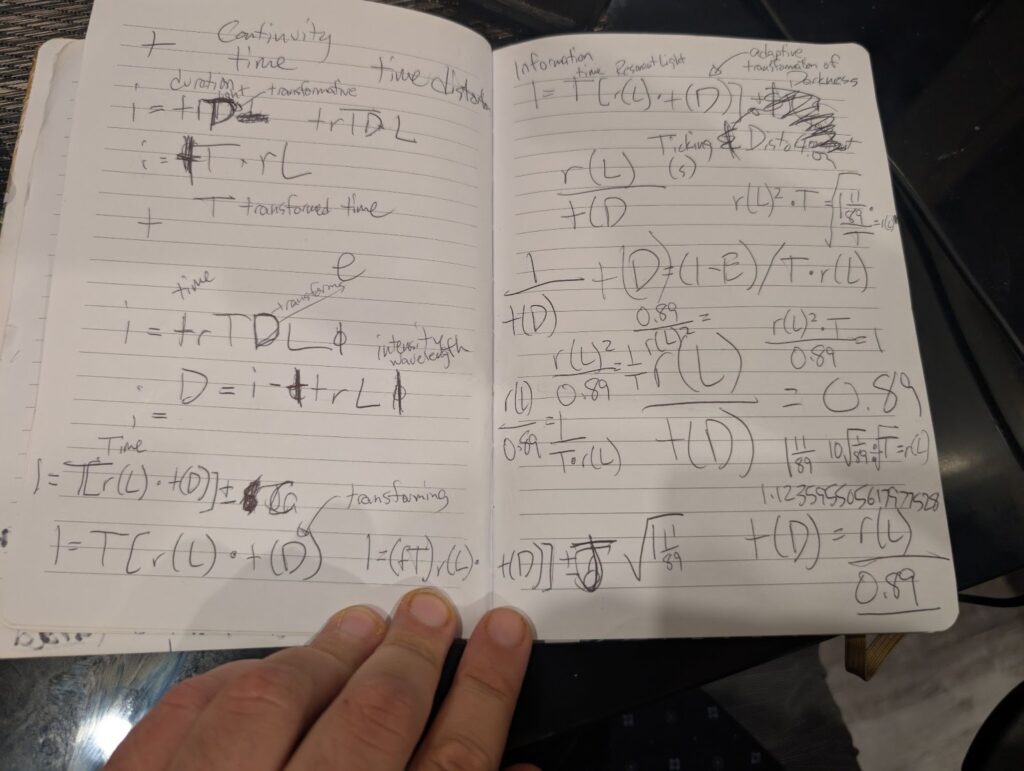 + Continuity
time
time distortion
duration
transformative
trTDL
i = T · rL
+ T transformed time
e
time
transforms
i = trTDLϕ
intensity
wavelength
D = i - trLϕ
i =
Time
1 = T[r(L) · t(D)] ±
transforming
1 = T[r(L) · t(D)
1 = (fT)r(L) ·
Information
time Resonant light
adaptive
transformation of
Darkness
1 = T[r(L) · t(D)] ±
Ticking
r(L)
t(D
(s)
r(L)² · T = √1 11/89
T
1
t(D)
t(D) = (1-E)/T · r(L)
0.89
r(L)² =
r(L)² · T
0.89 = 1
r(L)² = 1
0.89 T
r(L)
t(D) = 0.89
r(L) = 1
0.89 T · r(L)
1 11/89
1.123595505617977528
t(D)] ±
√1 11/89
t(D) = r(L)
0.89